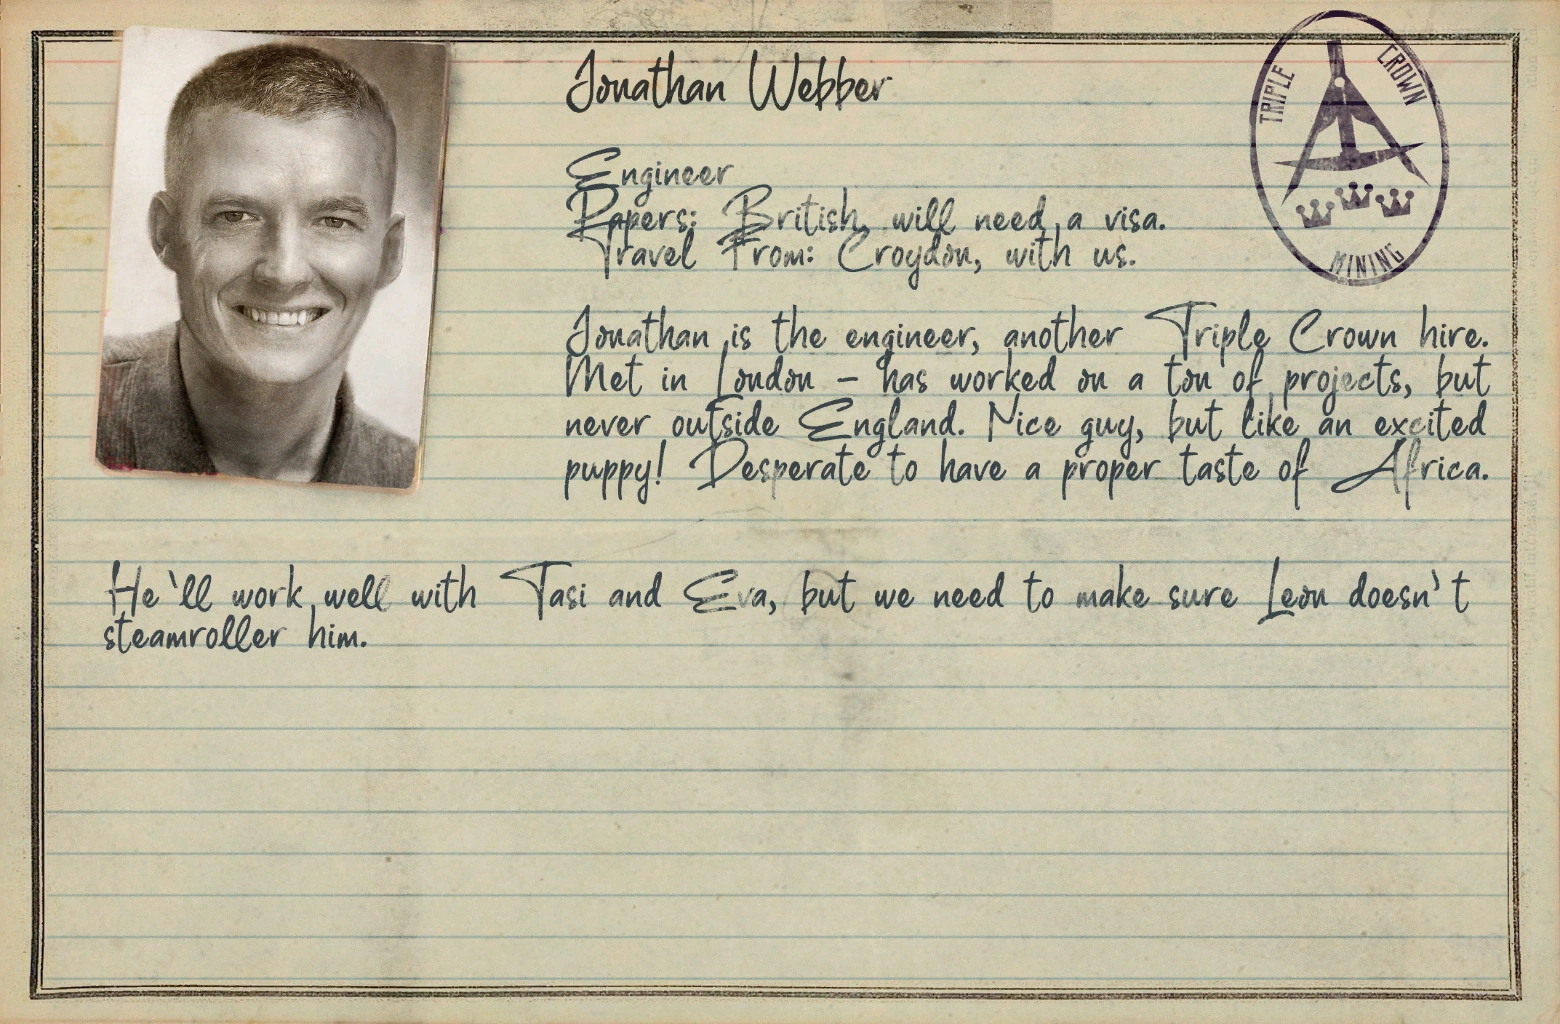 Jonathan Webber
TRIPLE CROWN
MINING
Engineer
Papers: British, will need a visa.
Travel From: Croydon, with us.
Jonathan is the engineer, another Triple Crown hire.
Met in London – has worked on a ton of projects, but
never outside England. Nice guy, but like an excited
puppy! Desperate to have a proper taste of Africa.
He`ll work well with Tasi and Eva, but we need to make sure Leon doesn't
steamroller him.